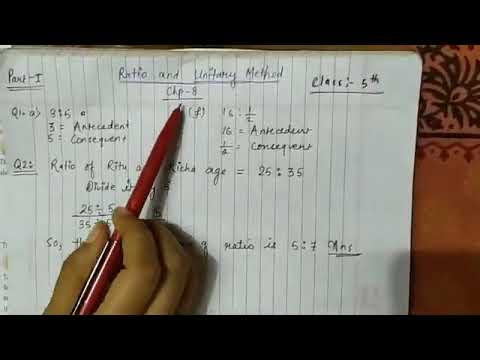 Part-I
Ratio and Unitary Method
Chp-8
Class:- 5th
Q1. a) 3:5
3 = Antecedent
5 = Consequent
(f) 16 : 1/2
16 = Antecedent
1/2 = Consequent
Q2: Ratio of Ritu Richa age = 25:35
Divide by 5
25÷5
35÷5
So, ratio is 5:7 Ans